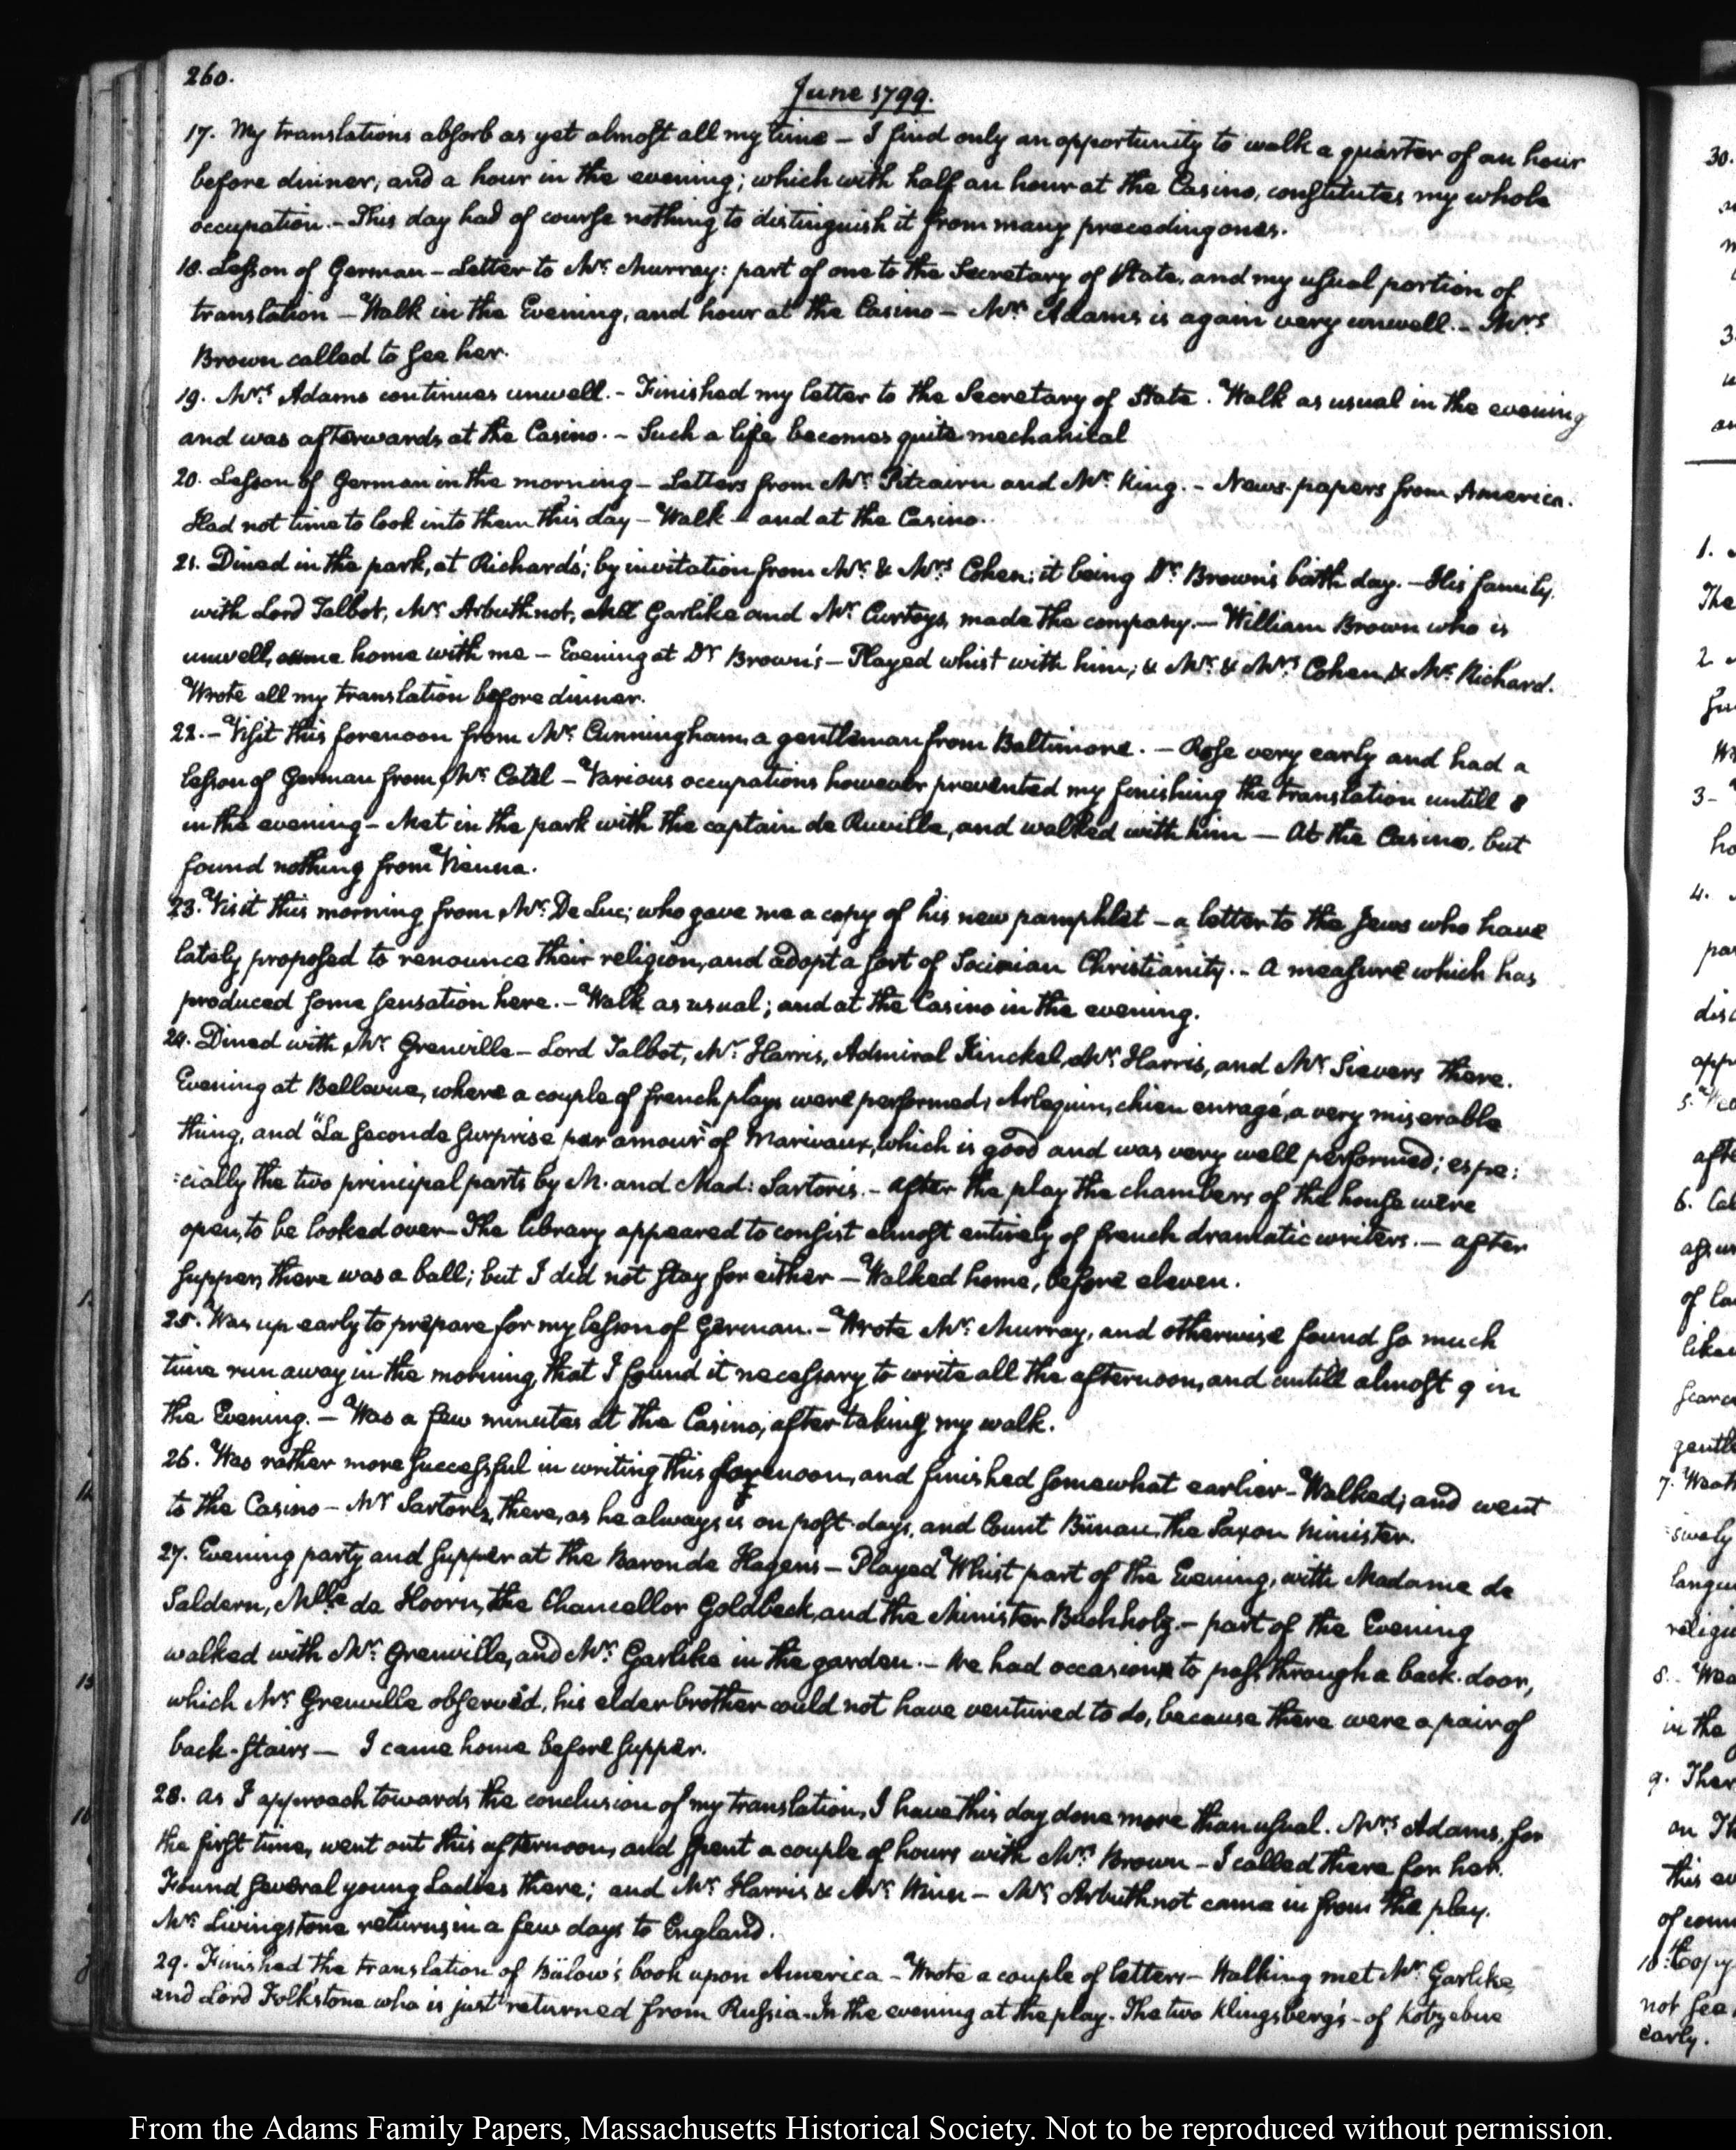 260.
June 1799.
17. My translations absorb as yet almost all my time – I find only an opportunity to walk a quarter of an hour
before dinner; and a hour in the evening; which with half an hour at the Casino, constitutes my whole
occupation. – This day had of course nothing to distinguish it from many preceding ones.
18. Lesson of German – Letter to Mr. Murray: part of one to the Secretary of State, and my usual portion of
translation – Walk in the Evening, and hour at the Casino – Mrs. Adams is again very unwell. – Mrs.
Brown called to see her.
19. Mrs. Adams continues unwell. – Finished my letter to the Secretary of State. Walk as usual in the evening
and was afterwards at the Casino. – Such a life becomes quite mechanical
20. Lesson of German in the morning – Letters from Mr. Pitcairn and Mr. King. – News-papers from America.
Had not time to look into them this day – Walk – and at the Casino.
21. Dined in the park, at Richard's; by invitation from Mr. & Mrs. Cohen; it being Dr. Brown's birth day. – His family,
with Lord Talbot, Mr. Arbuthnot, Mr. Garlike and Mr. Curtoys, made the company. – William Brown who is
unwell, came home with me – Evening at Dr. Brown's – Played whist with him; & Mr. & Mrs. Cohen & Mr. Richard.
Wrote all my translation before dinner.
22. – Visit this forenoon from Mr. Cunningham, a gentleman from Baltimore. – Rose very early and had a
lesson of German from Mr. Catel – Various occupations however prevented my finishing the translation untill 8
in the evening – Met in the park with the captain de Ruville, and walked with him – At the Casino, but
found nothing from Vienna.
23. Visit this morning from Mr. De Luc; who gave me a copy of his new pamphlet – a letter to the Jews who have
lately proposed to renounce their religion, and adopt a sort of Socinian Christianity. – A measure which has
produced some sensation here. – Walk as usual; and at the Casino in the evening.
24. Dined with Mr. Grenville – Lord Talbot, Mr. Harris, Admiral Kinckel, Mr. Harris, and Mr. Sievers there.
Evening at Bellevue, where a couple of french plays were performed; Arlequin, chien enragé, a very miserable
thing, and "La seconde surprise par amour" of Marivaux, which is good and was very well performed; espe:
:cially the two principal parts by M. and Mad: Sartoris. – After the play the chambers of the house were
open, to be looked over – The library appeared to consist almost entirely of french dramatic writers. – After
supper, there was a ball; but I did not stay for either – Walked home, before eleven.
25. Was up early to prepare for my lesson of German. – Wrote Mr. Murray, and otherwise found so much
time run away in the morning, that I found it necessary to write all the afternoon, and untill almost 9 in
the Evening. – Was a few minutes at the Casino, after taking my walk.
26. Was rather more successful in writing this forenoon, and finished somewhat earlier – Walked; and went
to the Casino – Mr. Sartoris, there, as he always is on post-days, and Count Bünau, the Saxon Minister.
27. Evening party and supper at the Baron de Hagens – Played Whist part of the Evening, with Madame de
Saldern, Mlle. de Hoorn, the Chancellor Goldbeck, and the Minister Buchholz. – part of the Evening
walked with Mr. Grenville, and Mr. Garlike in the garden. – We had occasion to pass through a back-door,
which Mr. Grenville observed, his elder brother would not have ventured to do, because there were a pair of
back-stairs – I came home before supper.
28. As I approach towards the conclusion of my translation, I have this day done more than usual. Mrs. Adams, for
the first time, went out this afternoon, and spent a couple of hours with Mrs. Brown – I called there for her.
Found several young Ladies there; and Mr. Harris & Mr. Winn – Mr. Arbuthnot came in from the play.
Mr. Livingstone returns in a few days to England.
29. Finished the translation of Bülow's book upon America – Wrote a couple of letters – Walking met Mr. Garlike,
and Lord Folkstone who is just returned from Russia. In the evening at the play. The two Klingsberg's – of Kotzebue
From the Adams Family Papers, Massachusetts Historical Society. Not to be reproduced without permission.